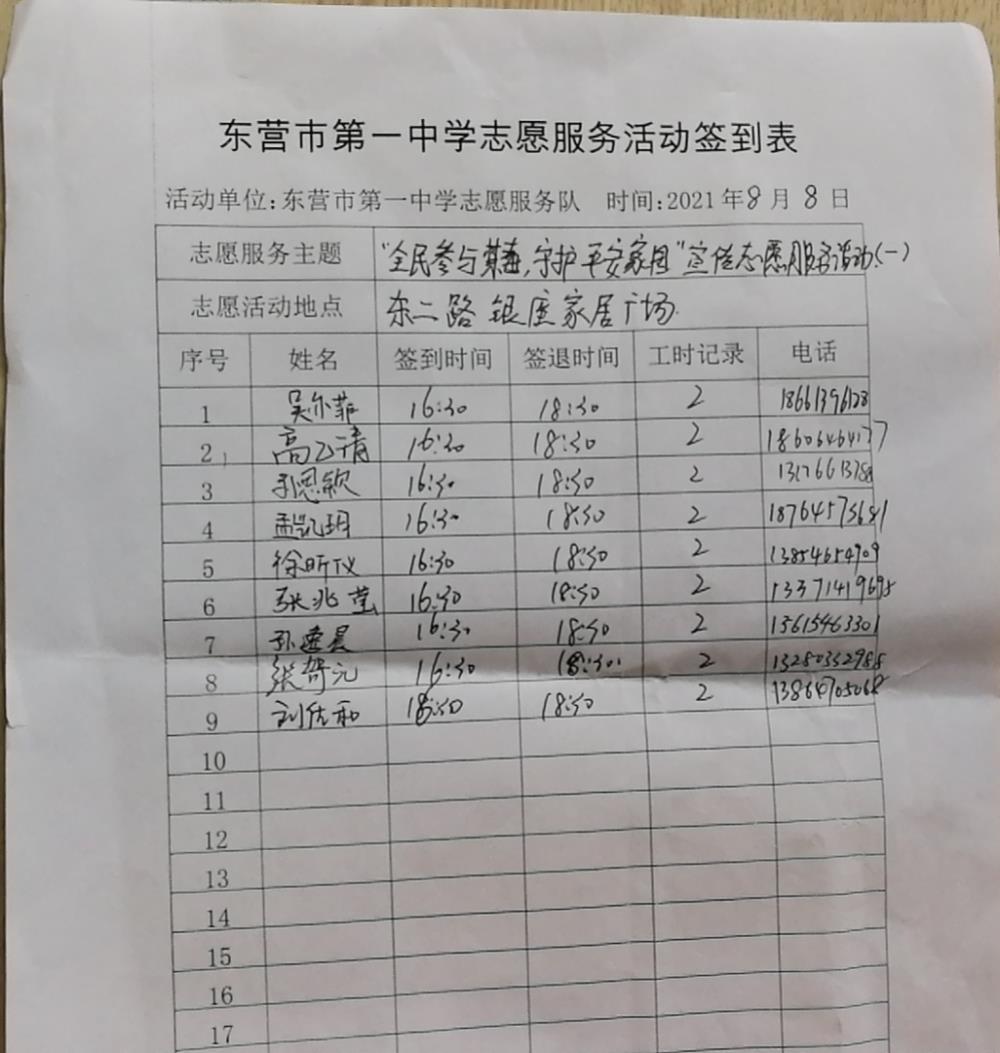 东营市第一中学志愿服务活动签到表
活动单位:东营市第一中学志愿服务队 时间:2021年8月8日
志愿服务主题 "全民参与禁毒,守护平安家园"宣传志愿服务活动(一)
志愿活动地点 东二路 银座家居广场
序号 姓名 签到时间 签退时间 工时记录 电话
1 吴尔菲 16:30 18:30 2 18661396128
2 高乙清 16:30 18:30 2
3 孙恩欣 16:30 18:30 2
4 孟凯玥 16:30 18:30 2
5 徐昕仪 16:30 18:30 2 13854654909
6 张兆莹 16:30 18:30 2 13371419695
7 孙 16:30 18:30 2 15615463301
8 张 元 16:30 18:30 2 13280332988
9 刘佐和 18:30 18:30 2 13864705068
10
11
12
13
14
15
16
17